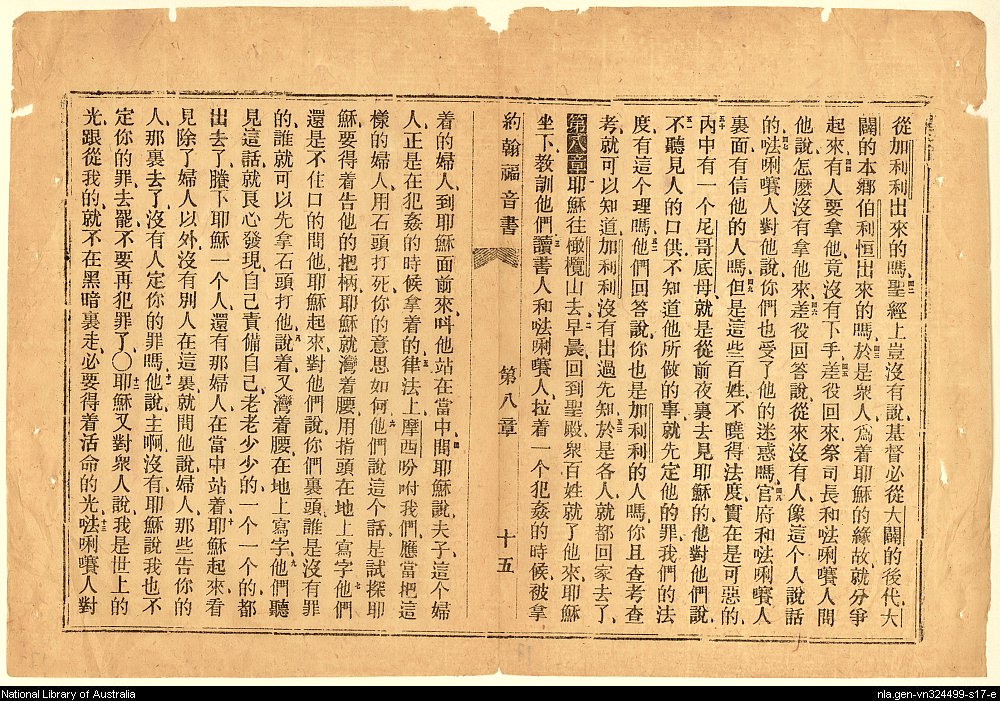 從加利利出來的嗎聖經上豈沒有說基督必從大闢的後代大
闢的本鄉伯利恒出來的嗎於是衆人爲着耶穌的緣故就分爭
起來有人要拿他竟沒有下手差役回來祭司長和𠵽唎㘔人問
他說怎麽沒有拿他來差役回答說從來沒有人像這個人說話
的𠵽唎㘔人對他說你們也受了他的迷惑嗎官府和𠵽唎㘔人
裏面有信他的人嗎但是這些百姓不曉得法度實在是可惡的
內中有一个尼哥底母就是從前夜裏去見耶穌的他對他們說
不聽見人的口供不知道他所做的事就先定他的罪我們的法
度有這个理嗎他們回答說你也是加利利的人嗎你且查考查
考就可以知道加利利沒有出過先知於是各人就都回家去了
第八章耶穌往橄欖山去早晨回到聖殿衆百姓就了他來耶穌
坐下教訓他們讀書人和𠵽唎㘔人拉着一个犯姦的時候被拿
約翰福音書 第八章 十五
着的婦人到耶穌面前來呌他站在當中間耶穌說夫子這个婦
人正是在犯姦的時候拿着的律法上摩西吩咐我們應當把這
樣的婦人用石頭打死你的意思如何他們說這个話是試探耶
穌要得着告他的把柄耶穌就灣着腰用指頭在地上寫字他們
還是不住口的問他耶穌起來對他們說你們裏頭誰是沒有罪
的誰就可以先拿石頭打他說着又灣着腰在地上寫字他們聽
見這話就良心發現自己責備自己老老少少的一个一个的都
出去了賸下耶穌一个人還有那婦人在當中站着耶穌起來看
見除了婦人以外沒有別人在這裏就問他說婦人那些告你的
人那裏去了沒有人定你的罪嗎他說主啊沒有耶穌說我也不
定你的罪去罷不要再犯罪了〇耶穌又對衆人說我是世上的
光跟從我的就不在黑暗裏走必要得着活命的光𠵽唎㘔人對
National Library of Australia
nla.gen-vn324499-s17-e